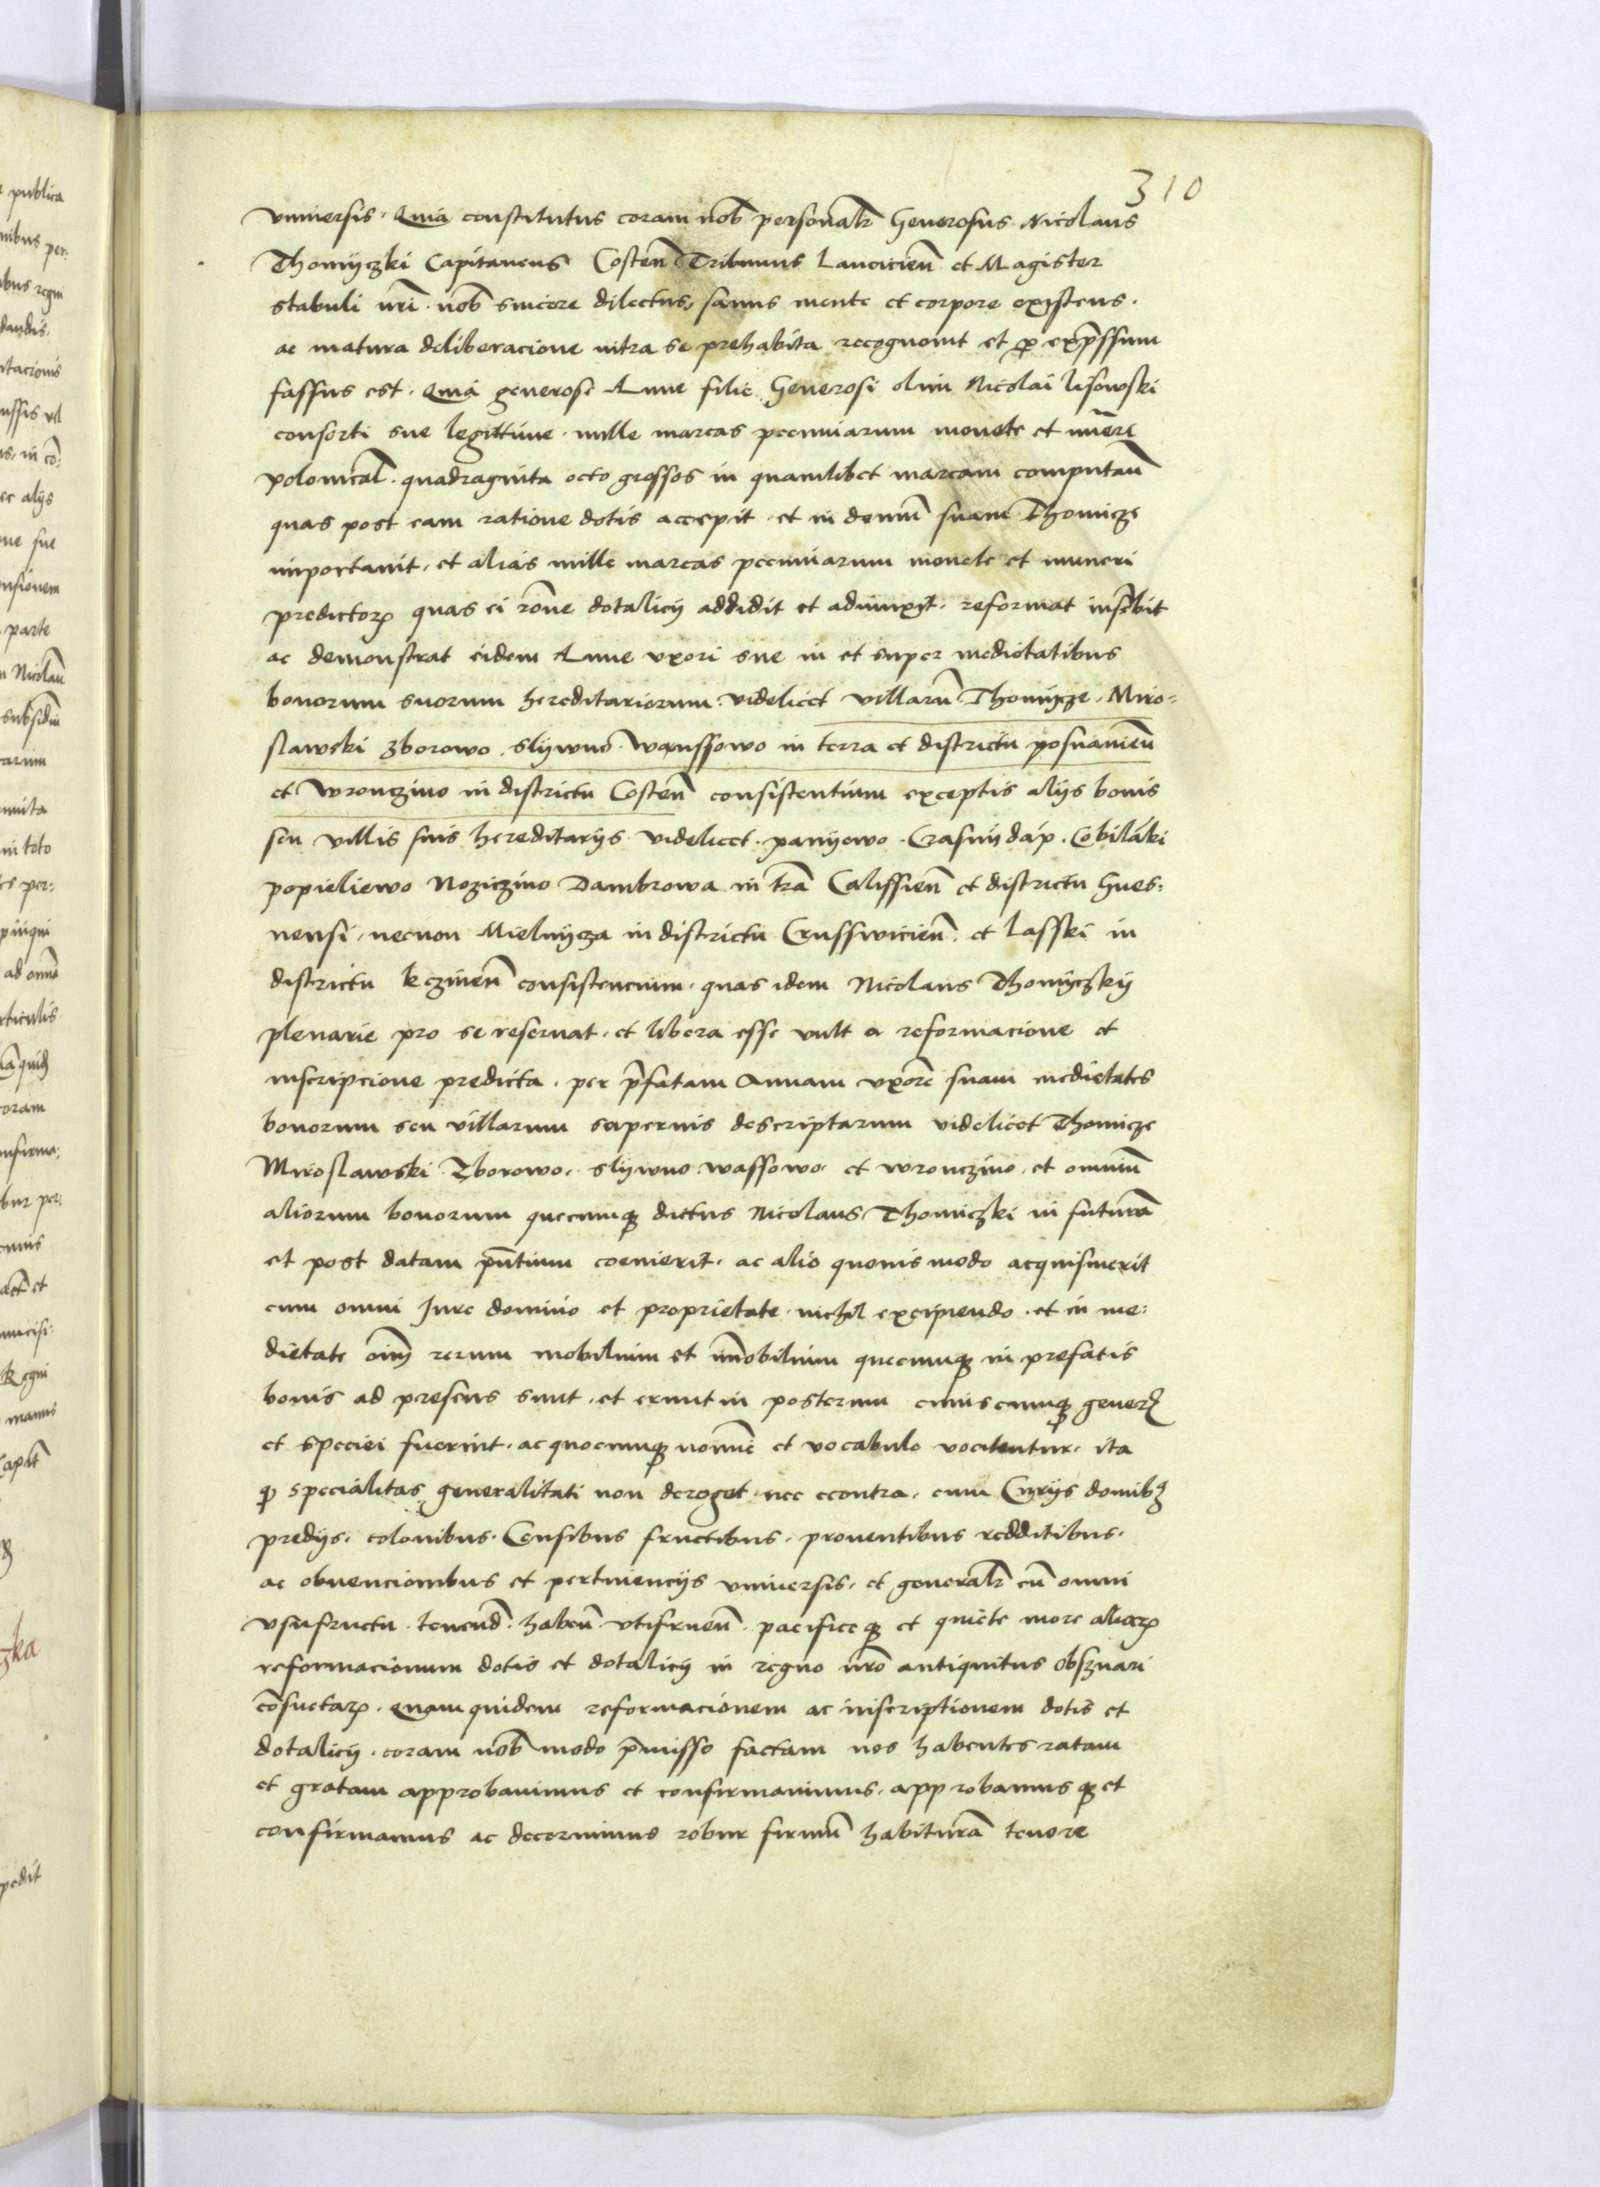 310
vniuersis. Quia constitutus coram nob personalr Generosus Nicolaus
Thomyczki Capitaneus Costen Tribunus Lancicien et Magister
stabuli nri. nob sincere dilectus, sanus mente et corpore existens.
ac matura deliberacione intra se prehabita recognouit et per expressum
fassus est. Quia generose Anne filie Generosi olim Nicolai lisowski
consorti sue legittime. mille marcas pecuniarum monete et nūeri
polonical. quadraginta octo grossos in quamlibet marcam computan
quas post eam ratione dotis accepit et in domum suam Thomicze
importauit, et alias mille marcas pecuniarum monete et numeri
predictorum quas ei rōne dotalicij addidit et adiunxit. reformat inscribit
ac demonstrat eidem Anne vxori sue in et super medietatibus
bonorum suorum hereditariorum. videlicet villarū Thomycze. Miro-
slawski zborowo. slywno. wanssowo in terra et districtu posnanien
et Wronczino in districtu Costen consistentium exceptis alijs bonis
seu villis suis hereditarijs videlicet. panyewo. Crasnydap. Cobilaki
popieliewo Noziczino Dambrowa in tra Calissien et districtu Gnes-
nensi, necnon Mielnycza in districtu Crusswicien. et lasski in
districtu kczinen consistencium. quas idem Nicolaus Thomyczkij
plenarie pro se reseruat. et libera esse vult a reformacione et
inscripcione predicta. per prefatam Annam vxore suam medietates
bonorum seu villarum superius descriptarum videlicet Thomicze
Miroslawski Zborowo. slywno wassowo et wronczino. et omnium
aliorum bonorum quecumque dictus Nicolaus Thomiczki in futurum
et post datam pntium coemerit. ac alio quouis modo acquisiuerit
cum omni Jure dominio et proprietate. nichil excipiendo. et in me-
dietate oim rerum mobilium et immobilium quecumque in prefatis
bonis ad presens sunt. et erunt in posterum cuiuscumque generis
et speciei fuerint. ac quocumque nomine et vocabulo vocitentur. ita
quod specialitas generalitati non deroget nec econtra. cum Curijs domibus
predijs. colonibus. Censibus fructibus. prouentibus redditibus.
ac obuencionibus et pertinencijs vniuersis. et generalr cū omni
vsufructu. tenend. haben. vtifruen. pacifice que et quiete more aliarum
reformacionum dotis et dotalicij in regno nro antiquitus obseruari
cōsuetarum. Quamquidem reformacionem ac inscriptionem dotis et
dotalicij. coram nob modo premisso factam nos habentes ratam
et gratam approbauimus et confirmauimus. approbamus que et
confirmamus ac decernimus robur firmū habituram tenore